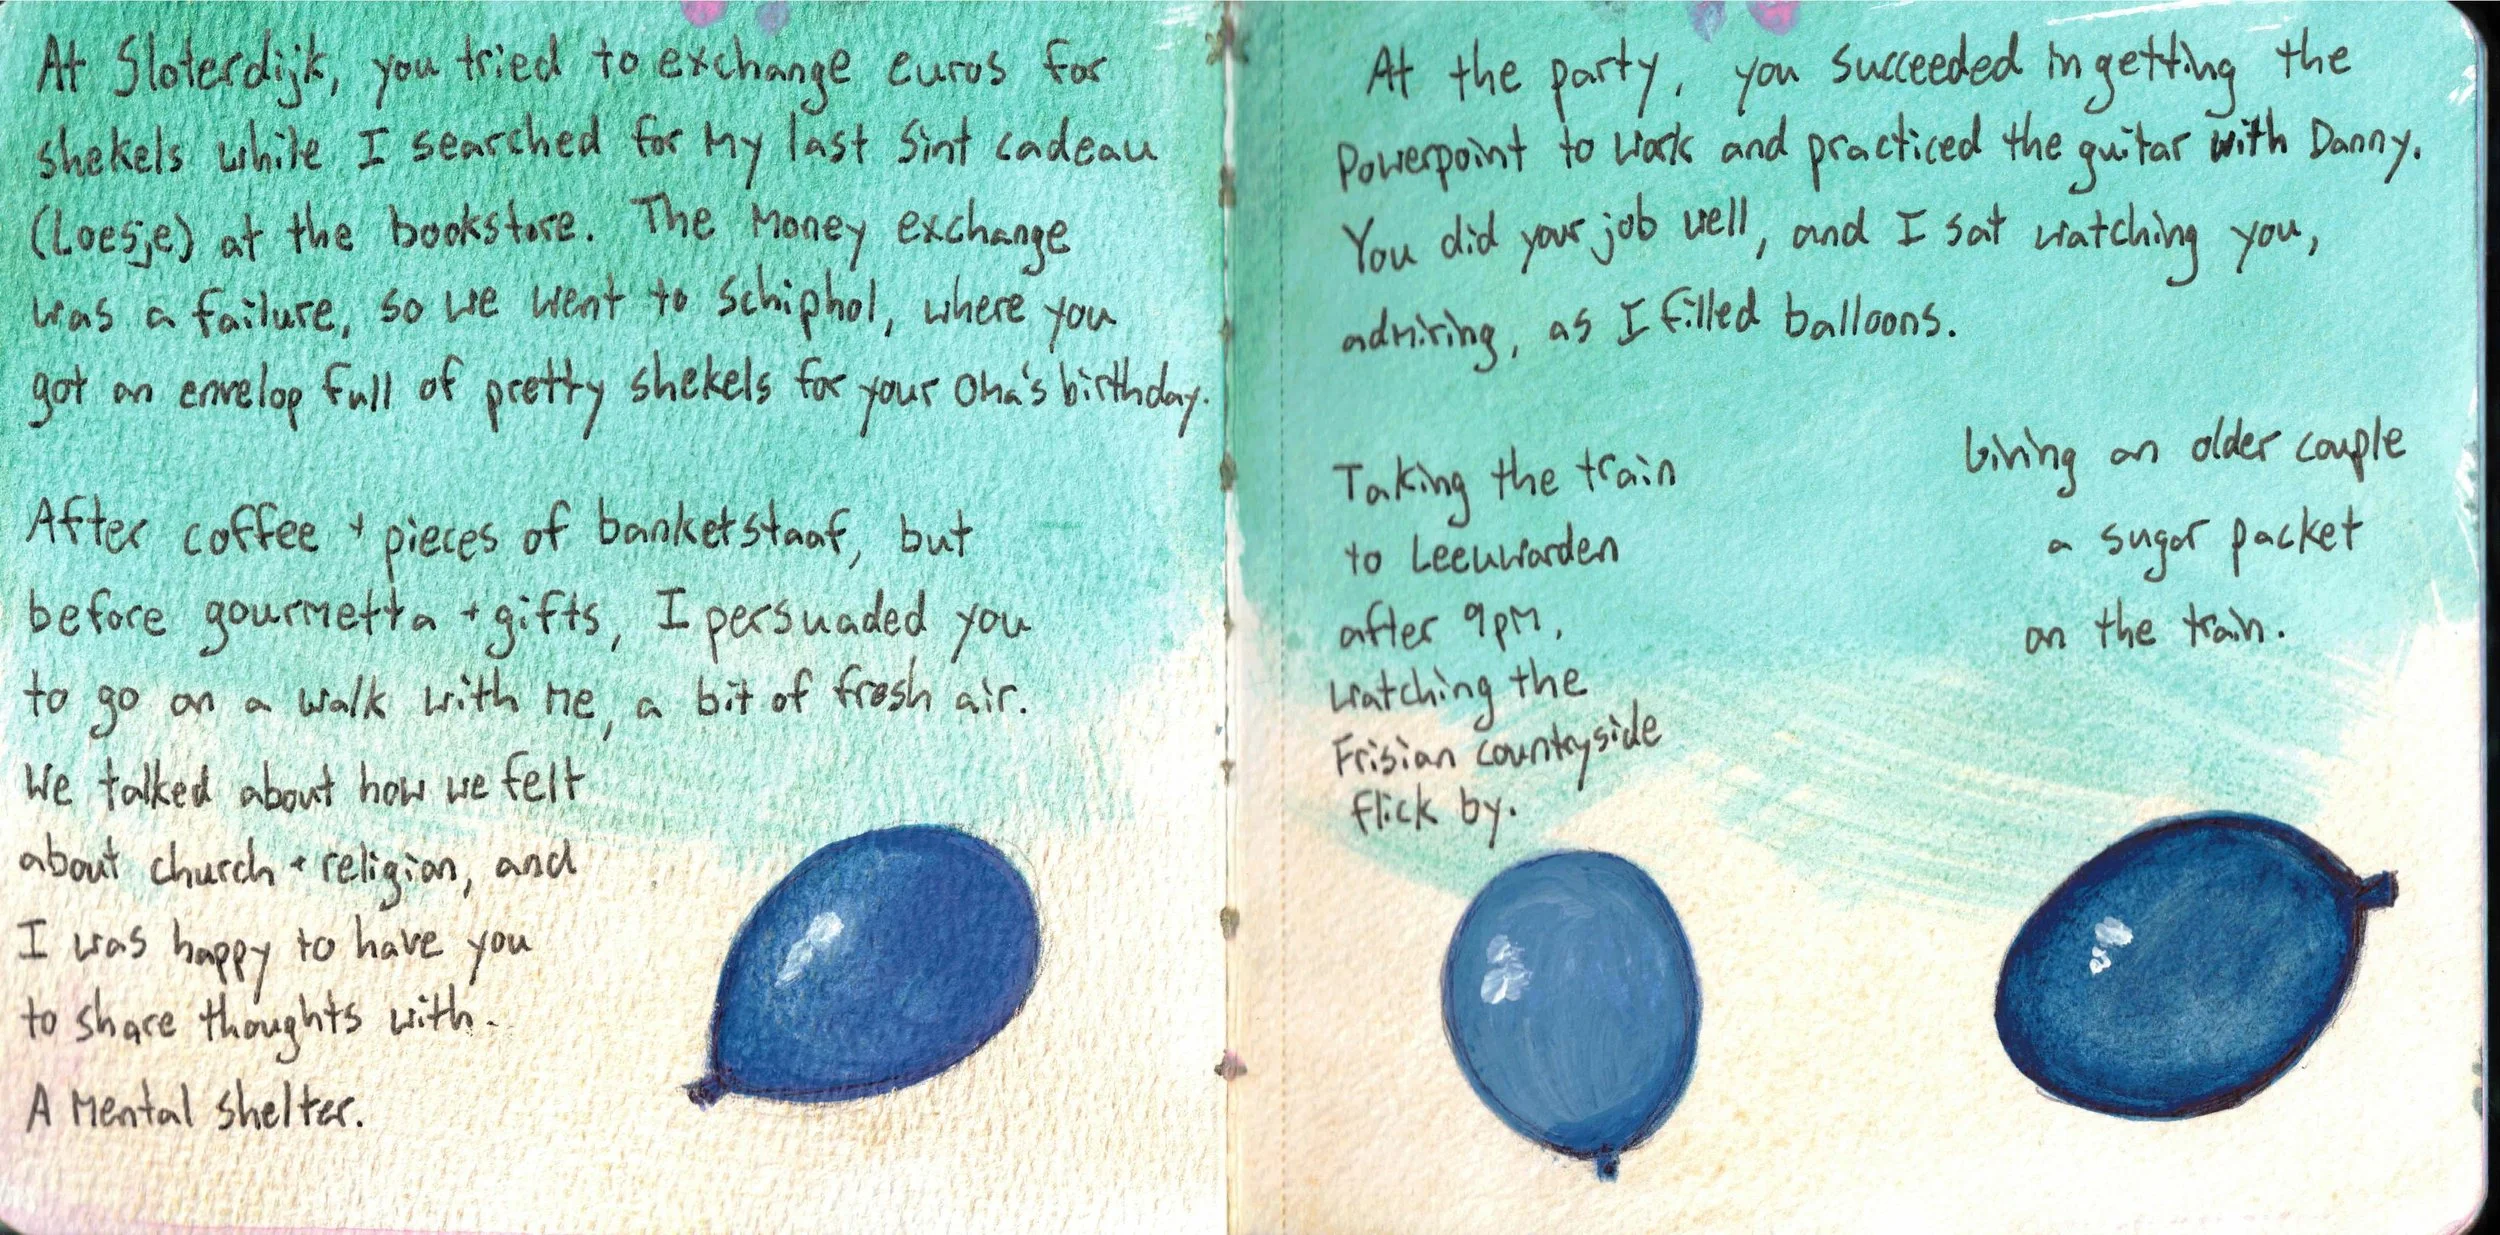 At Sloterdijk, you tried to exchange euros for
shekels while I searched for my last Sint cadeau
(Loesje) at the bookstore. The money exchange
was a failure, so we went to Schiphol, where you
got an envelop full of pretty shekels for your Oma's birthday.
After coffee + pieces of banketstaaf, but
before gourmetta + gifts, I persuaded you
to go on a walk with me, a bit of fresh air.
We talked about how we felt
about church + religion, and
I was happy to have you
to share thoughts with.
A mental shelter.
At the party, you succeeded in getting the
Powerpoint to work and practiced the guitar with Danny.
You did your job well, and I sat watching you,
admiring, as I filled balloons.
Taking the train
to Leeuwarden
after 9pm,
watching the
Frisian countryside
flick by.
Giving an older couple
a sugar packet
on the train.